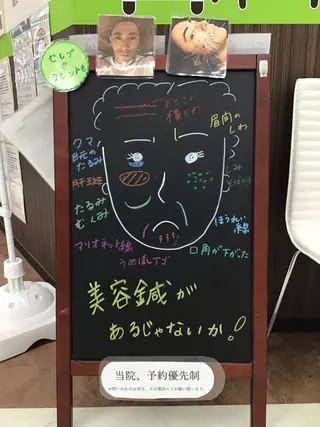 セレブや
タレントも
おでこの
横じわ
眉間の
しわ
クマ
目元の
たるみ
肝斑
しみ
そばかす
たるみ
むくみ
ほうれい
線
マリオネット線
うめぼしアゴ
口角が下がった
美容鍼が
あるじゃないか!
当院、予約優先制